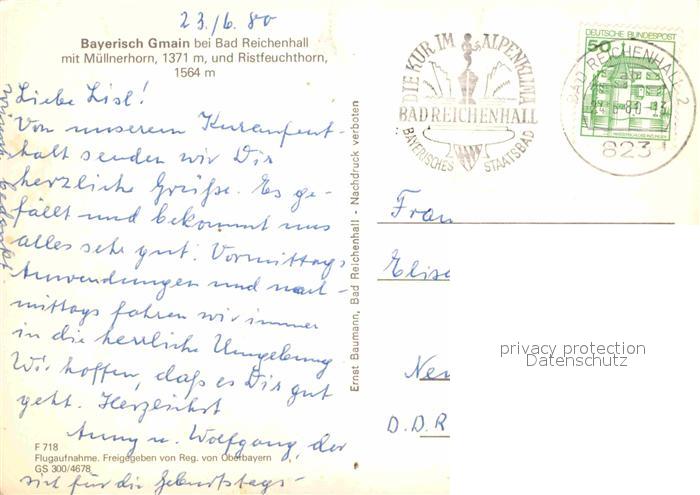 23./6. 80
Bayerisch Gmain bei Bad Reichenhall
mit Müllnerhorn, 1371 m, und Ristfeuchthorn,
1564 m
Liebe Lisl!
Von unserem Kuraufent-
halt senden wir Dir
herzliche Grüße. Es ge-
fällt und bekommt uns
alles sehr gut. Vormittags
Anwendungen und nach-
mittags fahren wir immer
in die herrliche Umgebung
Wir hoffen, daß es Dir gut
geht. Herzlichst
Anny u. Wolfgang, der
sich für die Geburtstags-
F 718
Flugaufnahme. Freigegeben von Reg. von Oberbayern
GS 300/4678
Ernst Baumann, Bad Reichenhall - Nachdruck verboten
DIE KUR IM ALPENKLIMA
BAD REICHENHALL
BAYERISCHES STAATSBAD
DEUTSCHE BUNDESPOST
50
BAD REICHENHALL 2
823
Frau
Elise
D.D.R
privacy protection
Datenschutz